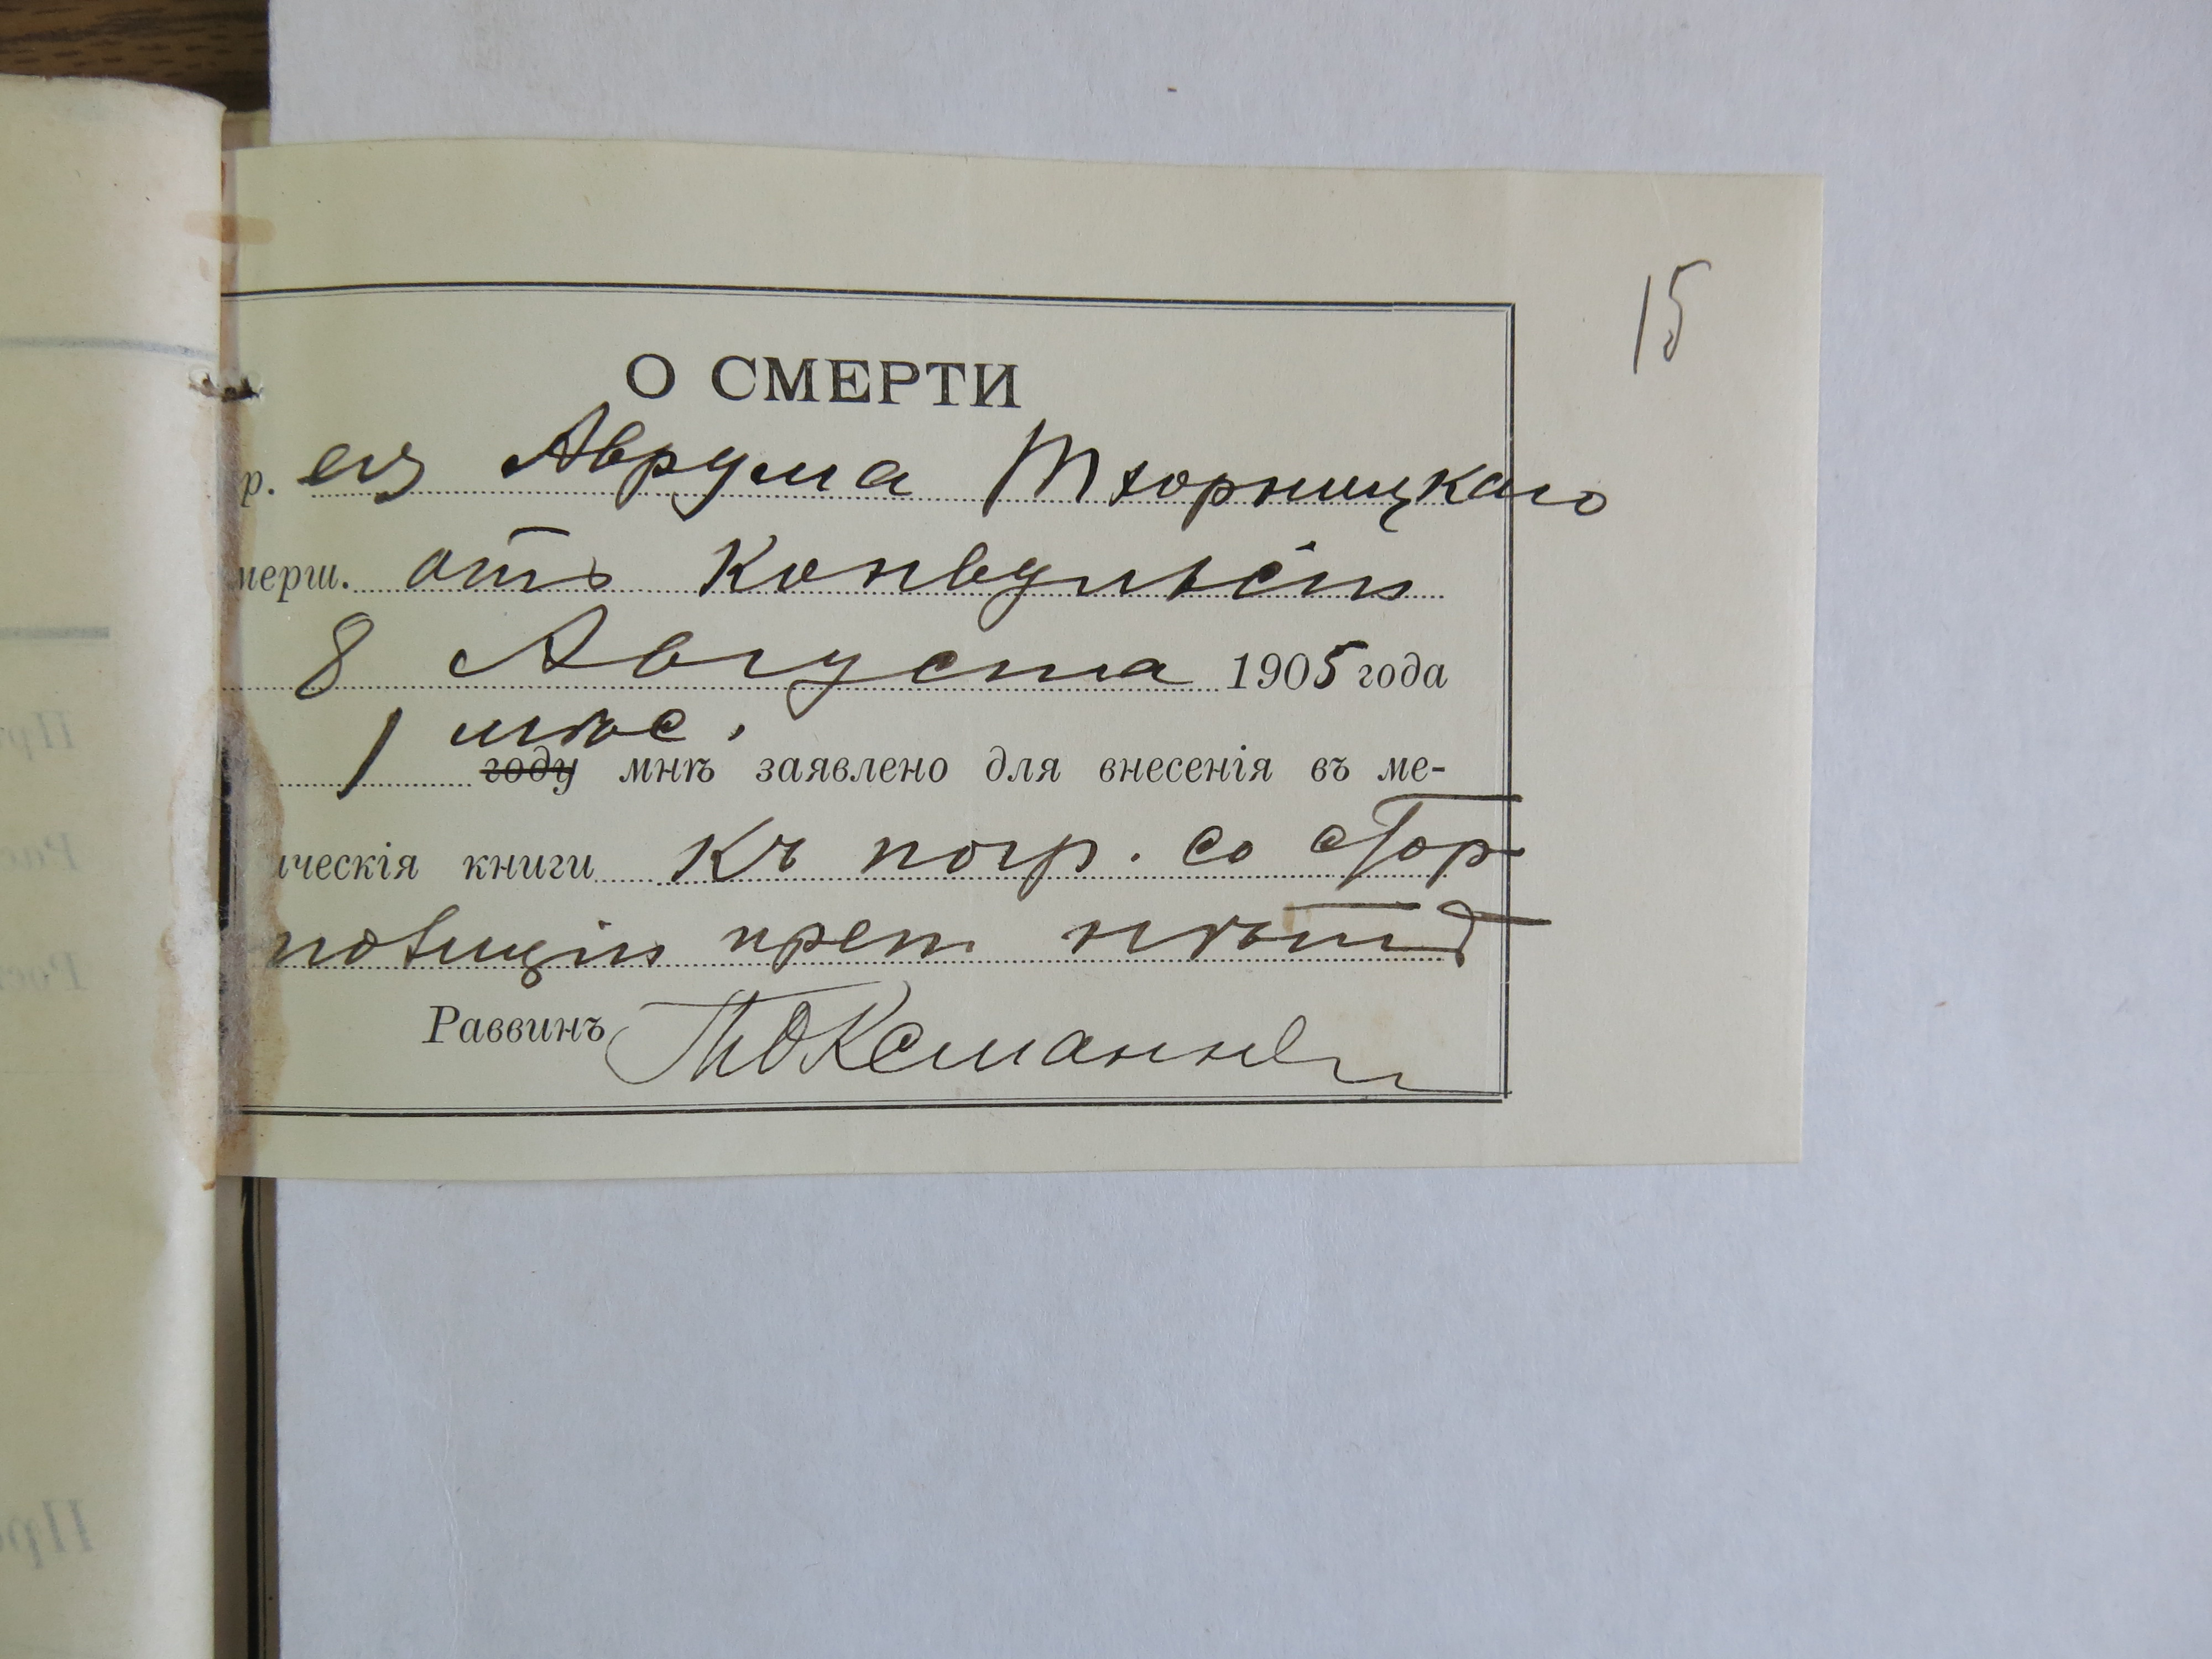 15
О СМЕРТИ
р. евр Аврума Тхорницкаго
мерш. отъ Конвульсіи
8 Августа 1905 года
1 мѣс.
году мнѣ заявлено для внесенія въ ме-
ическія книги къ погр. со стор
полиціи преп. нѣтъ
Раввинъ